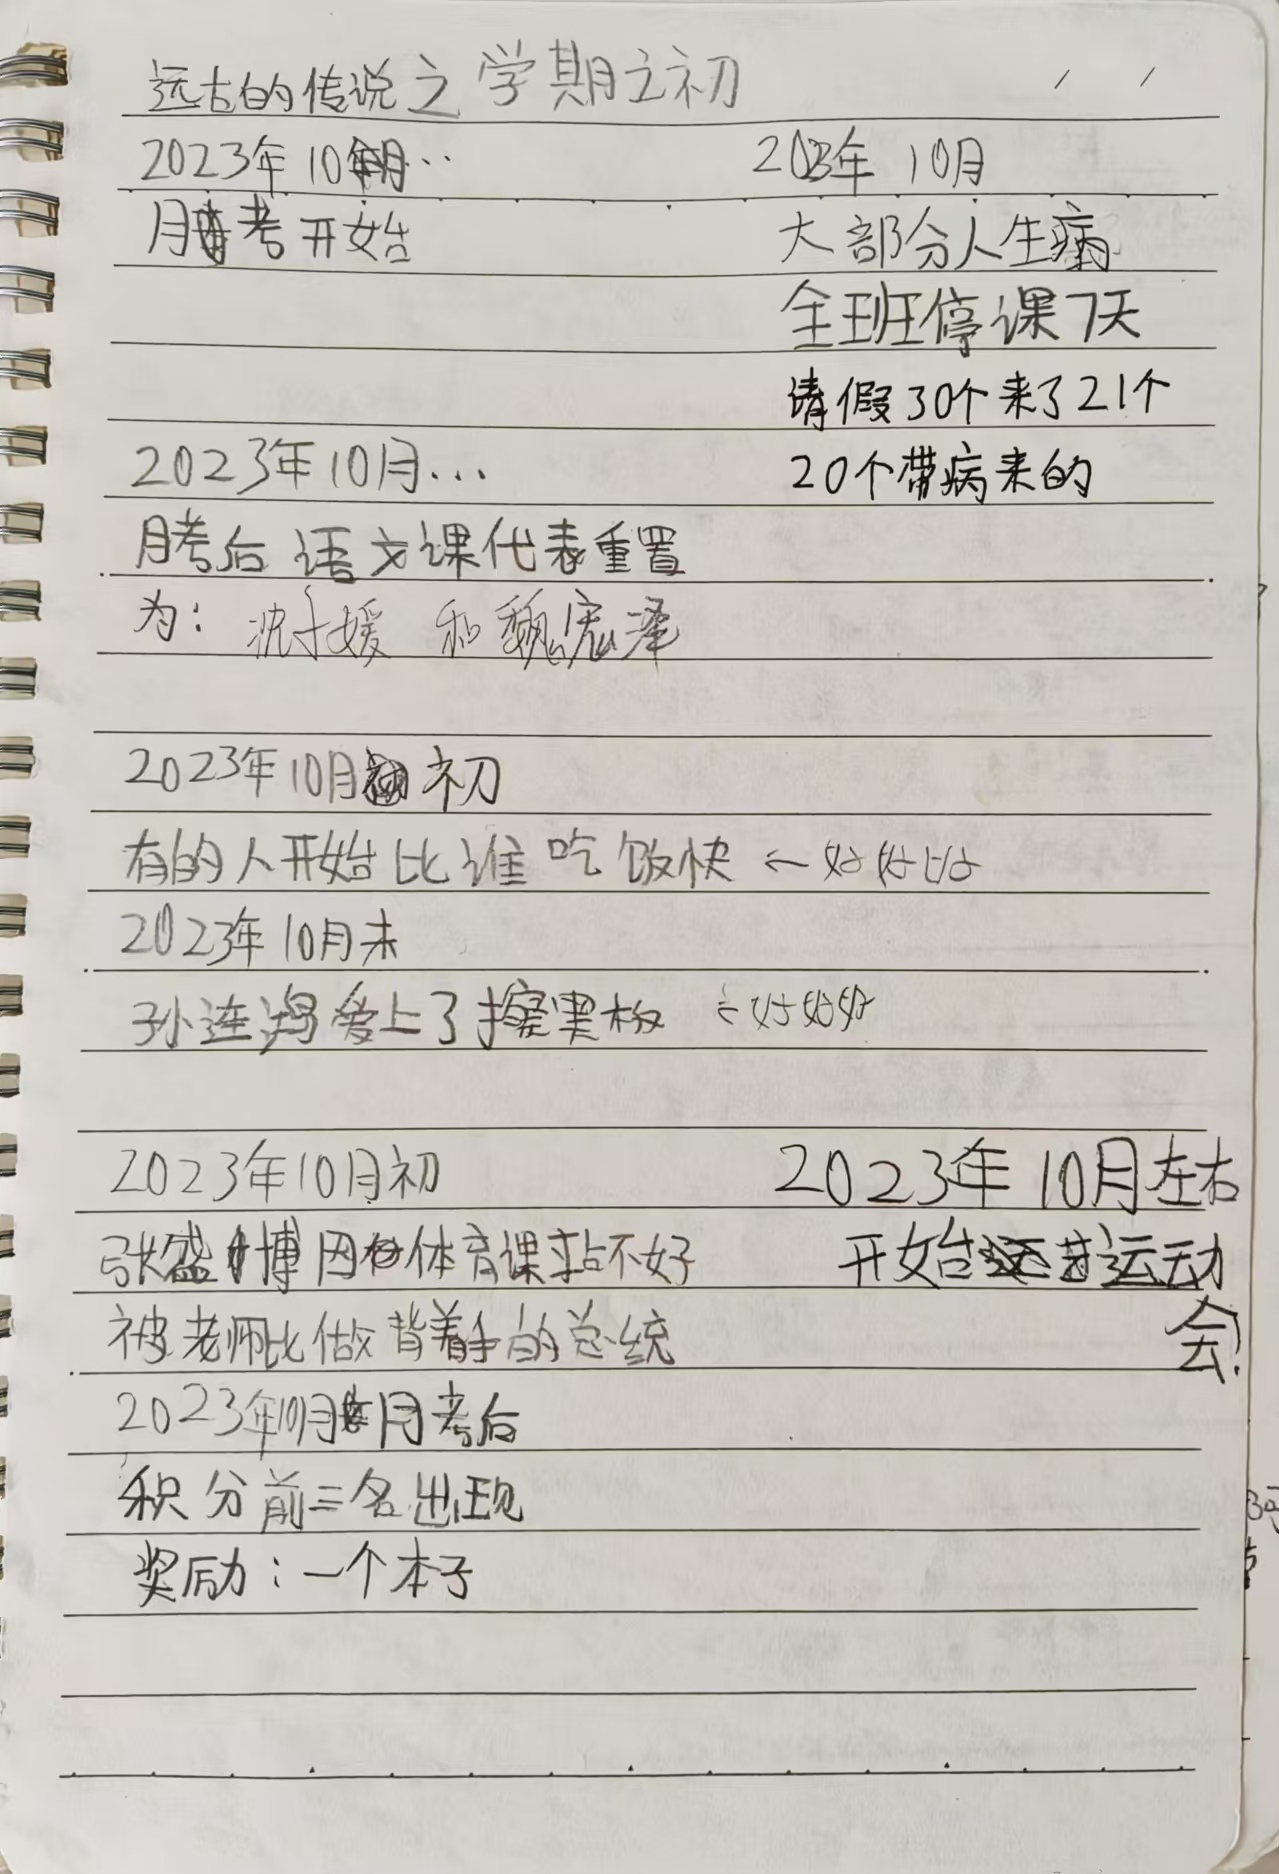 远古的传说之学期之初
2023年10月…
月考开始
2023年10月
大部分人生病
全班停课7天
请假30个来了21个
20个带病来的
2023年10月…
月考后 语文课代表重置
为： 沈子媛 和魏宏泽
2023年10月初
有的人开始比谁吃饭快 ←好好好
2023年10月末
孙连鸿爱上了擦黑板 ←好好好
2023年10月初
张盛博因体育课站不好
被老师比做背着手的总统
2023年10月左右
开始运动
会！
2023年10月月考后
积分前三名出现
奖励：一个本子